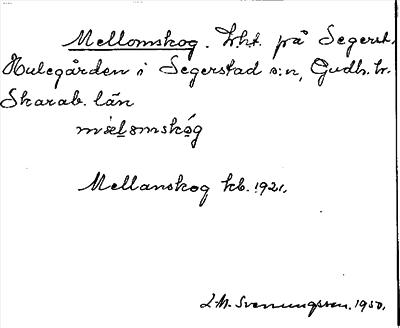 Mellomskog. Lht. på Segerst.
Hulegården i Segerstad s:n, Gudh. hr.
Skarab. län
mèl̬omskó̬g
Mellanskog kb. 1921.
L.M. Svenungsson. 1950.